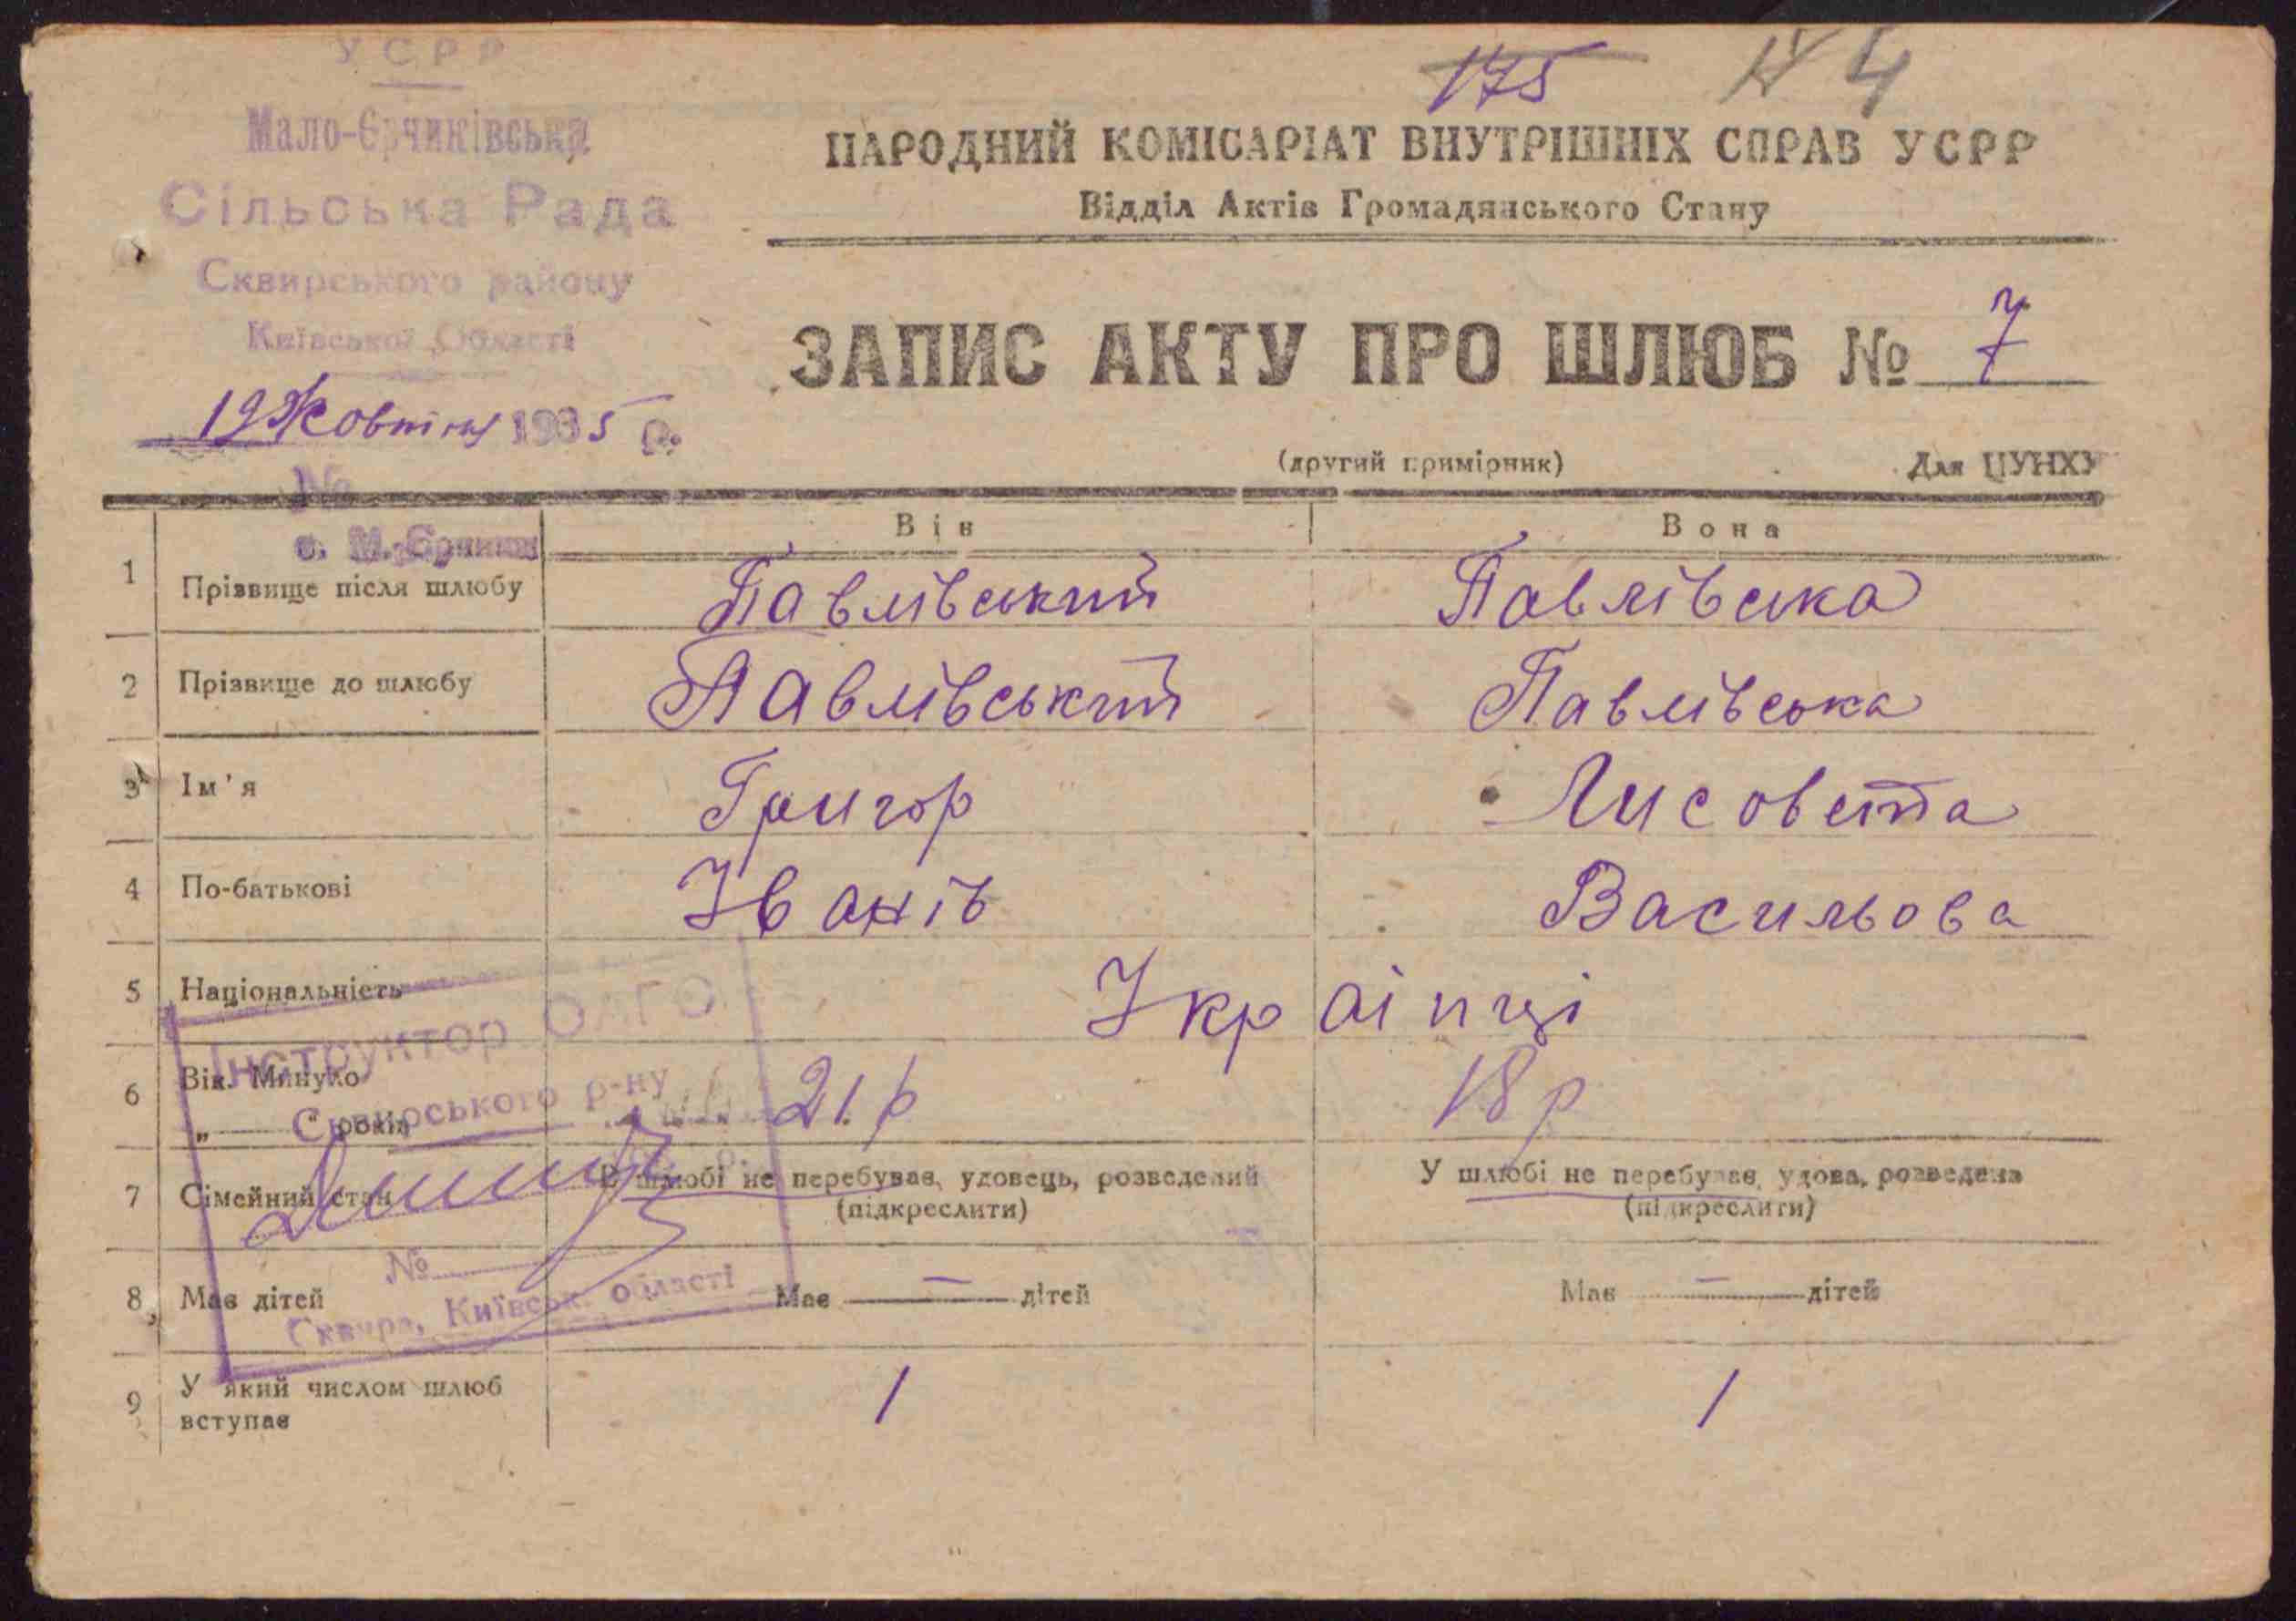 УСРР
Мало-Єрчиківська
Сільська Рада
Сквирського району
Київської Області
19 Жовтня 1935 р.
№
с. М.-Єрчики
175 4
НАРОДНИЙ КОМІСАРІАТ ВНУТРІШНІХ СПРАВ УСРР
Відділ Актів Громадянського Стану
ЗАПИС АКТУ ПРО ШЛЮБ № 7
(другий примірник) Для ЦУНХУ
Він Вона
1 Прізвище після шлюбу Павлівський Павлівска
2 Прізвище до шлюбу Павлівський Павлівська
3 Ім'я Григор Лисовета
4 По-батькові Іванів Васильова
5 Національність Українці
6 Вік. Минуло 21 р 18 р
„ — " років
7 Сімейний стан В шлюбі не перебував, удовець, розведений У шлюбі не перебував, удова, розведена
(підкреслити) (підкреслити)
8 Має дітей Має — дітей Має — дітей
9 У який числом шлюб 1 1
вступає
Інструктор ОАГС
Сквирського р-ну
№
Сквира, Київськ. області